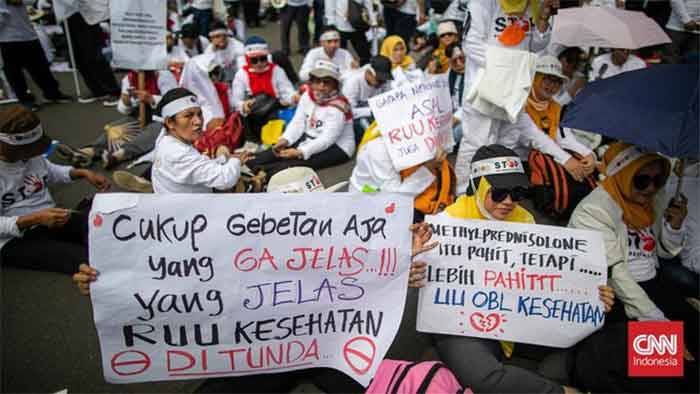 GARARA NENEN
ASAL
RUU KESE
JUGA
STOP
STOP
CUKUP GEBETAN AJA
YANG GA JELAS...!!!
YANG JELAS
RUU KESEHATAN
DITUNDA...
METHYLPREDNISOLONE
ITU PAHIT, TETAPI.....
LEBIH PAHITTT.....
UU OBL KESEHATAN
CNN
Indonesia